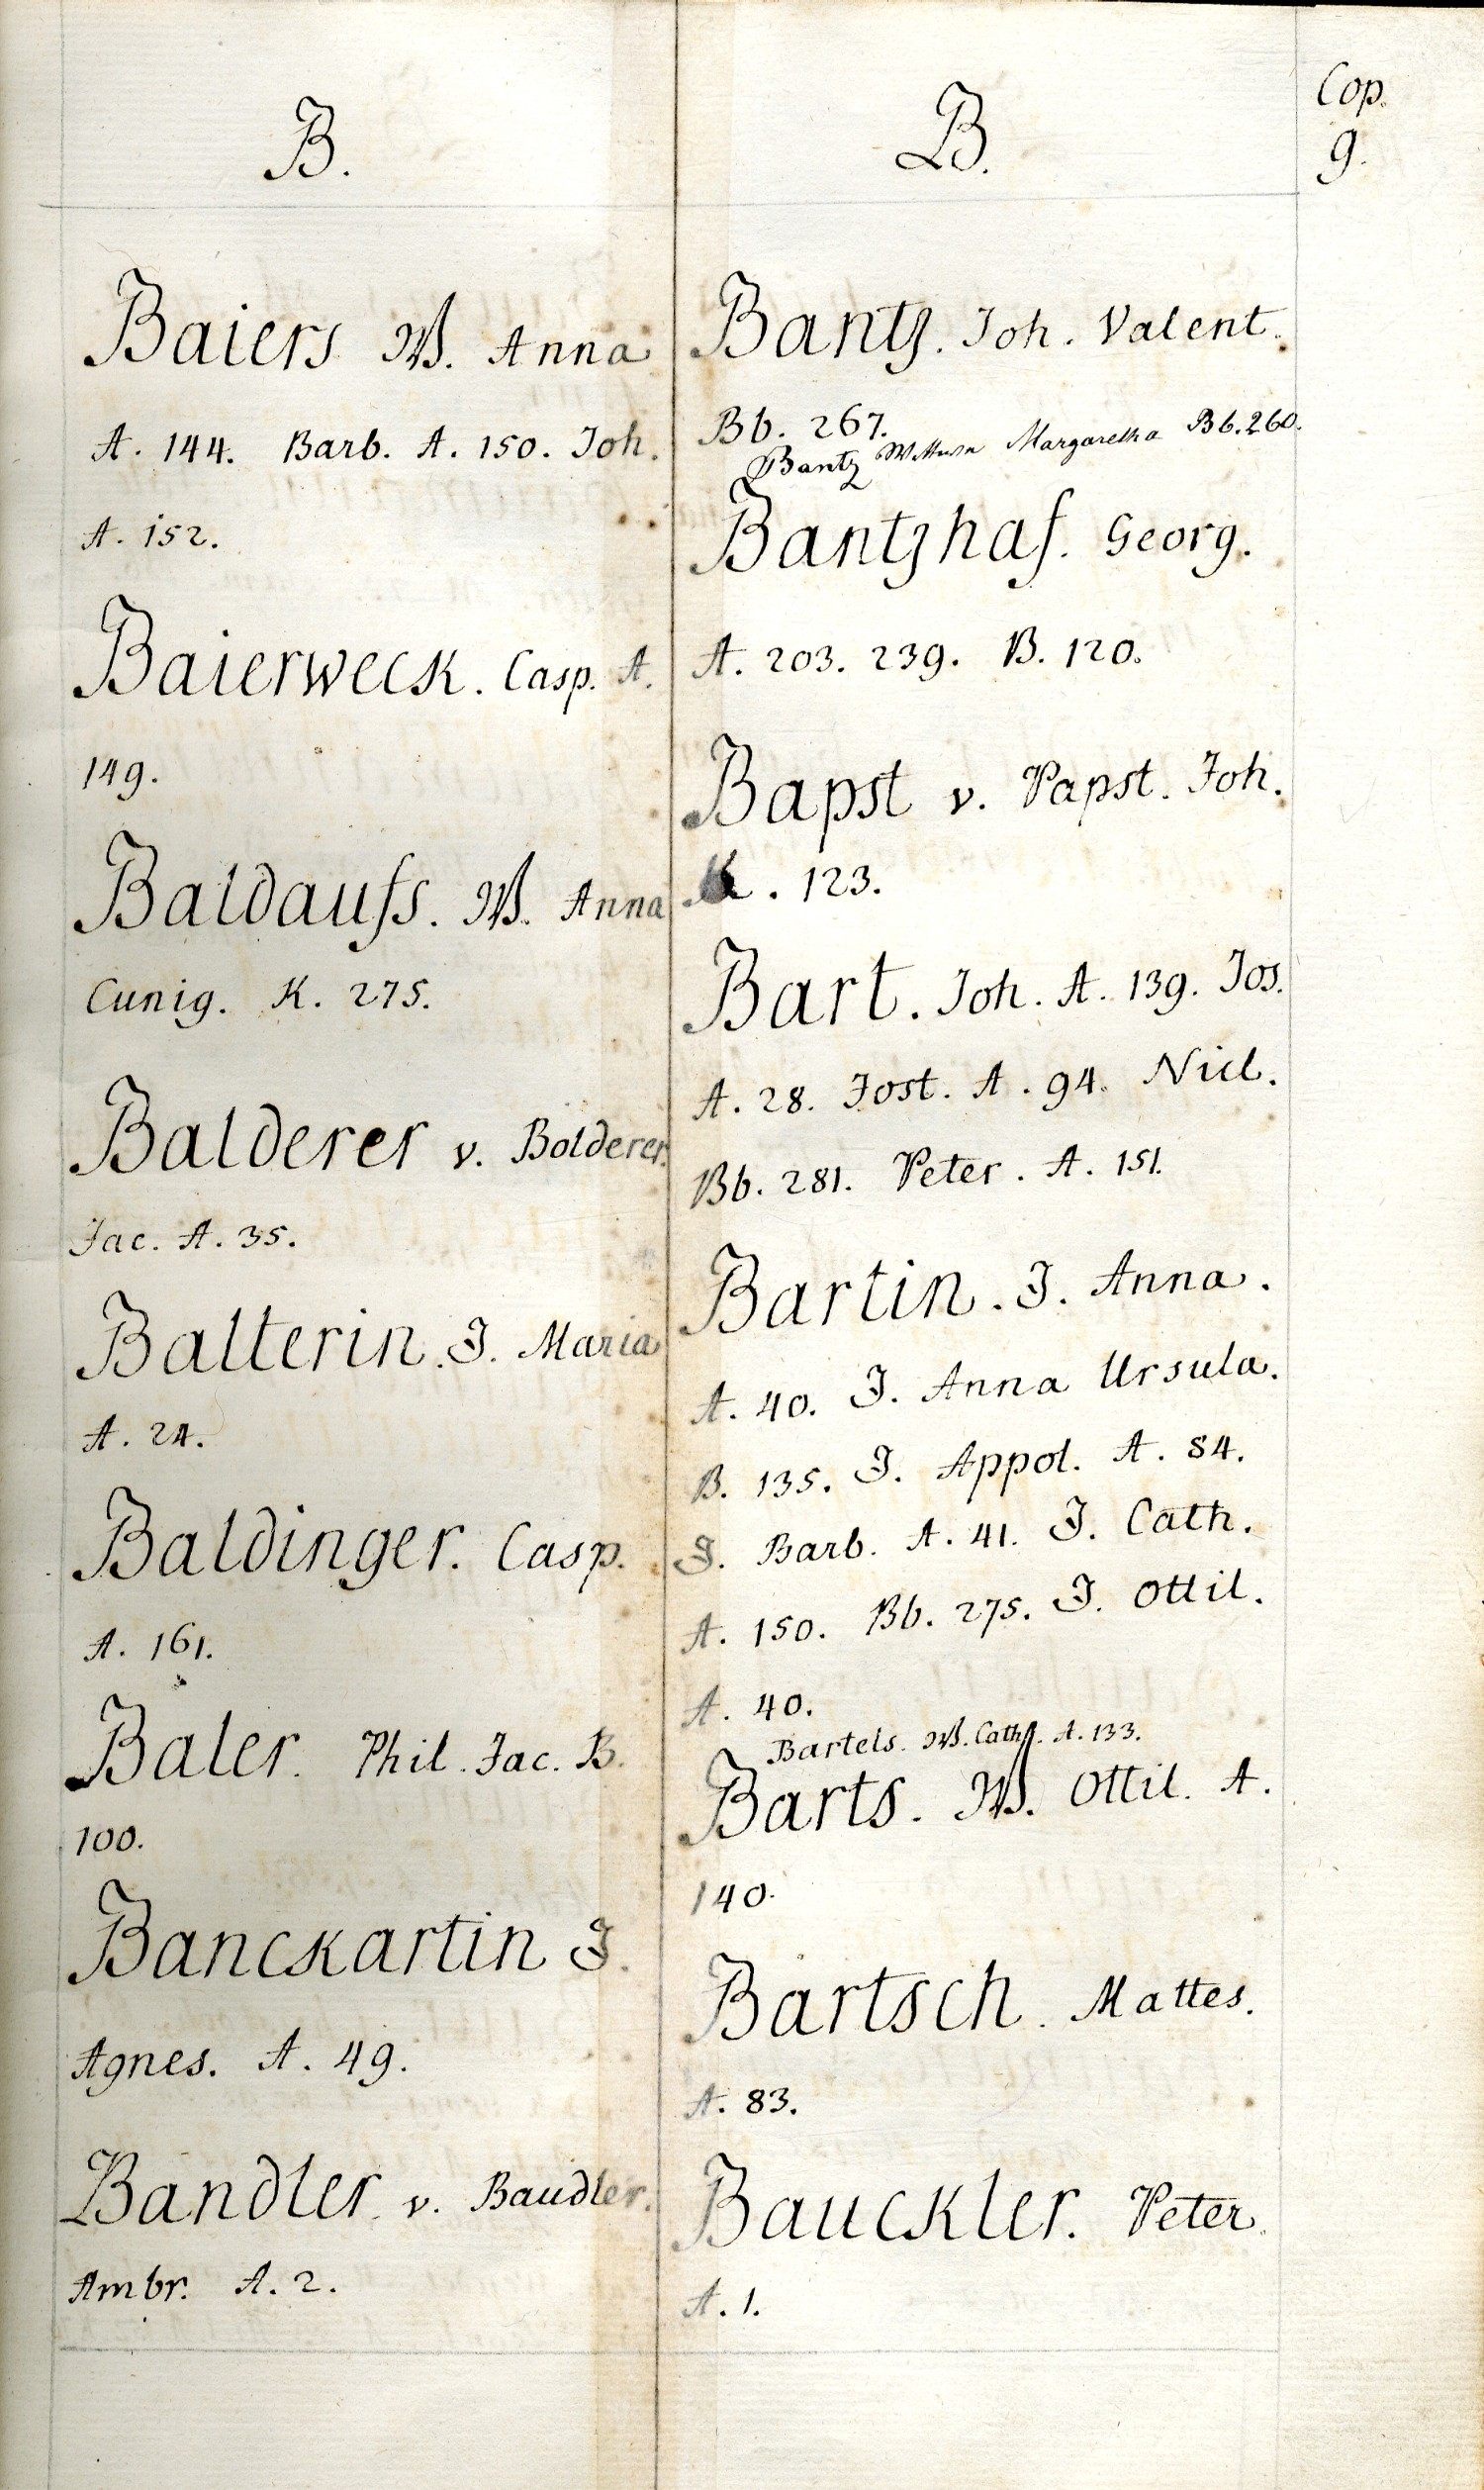 B.
Baiers W. Anna
A. 144. Barb. A. 150. Joh.
A. 152.
Baierweck. Casp. A.
149.
Baldaufs. W. Anna
Cunig. K. 275.
Balderer v. Bolderer.
Jac. A. 35.
Balterin. J. Maria
A. 24.
Baldinger. Casp.
A. 161.
Baler. Phil. Jac. B.
100.
Banckartin J.
Agnes. A. 49.
Bandler v. Baudler.
Ambr. A. 2.
B.
Cop.
9.
Bantz. Joh. Valent.
Bb. 267.
Bantz Wittwe Margaretha Bb. 260.
Bantzhaf. Georg.
A. 203. 239. B. 120.
Bapst v. Papst. Joh.
. 123.
Bart. Joh. A. 139. Jos.
A. 28. Jost. A. 94. Nicl.
Bb. 281. Peter. A. 151.
Bartin. J. Anna.
A. 40. J. Anna Ursula.
B. 135. J. Appol. A. 84.
J. Barb. A. 41. J. Cath.
A. 150. Bb. 275. J. Ottil.
A. 40.
Bartels. W. Cath. A. 133.
Barts. W. Ottil. A.
140.
Bartsch. Mattes.
A. 83.
Bauckler. Peter.
A. 1.